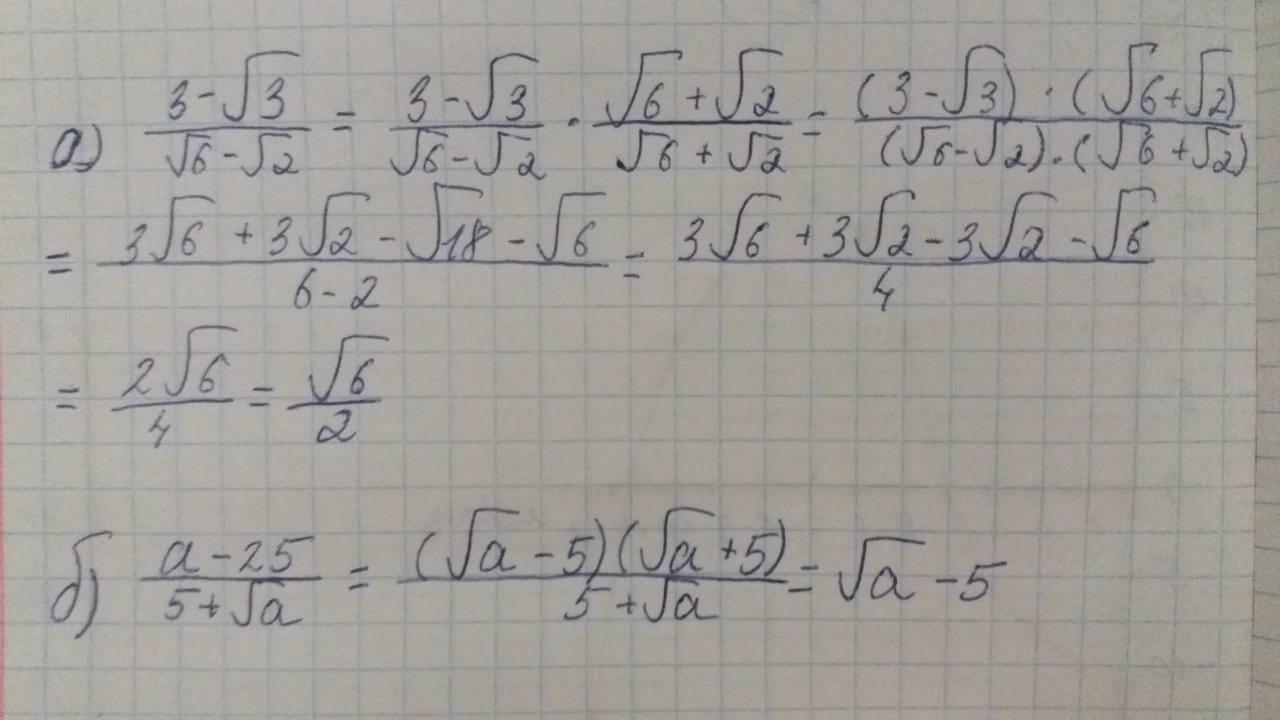 а) (3-√3)/(√6-√2) = (3-√3)/(√6-√2) · (√6+√2)/(√6+√2) = ((3-√3)·(√6+√2))/((√6-√2)·(√6+√2))
= (3√6+3√2-√18-√6)/(6-2) = (3√6+3√2-3√2-√6)/4
= 2√6/4 = √6/2
б) (a-25)/(5+√a) = ((√a-5)(√a+5))/(5+√a) = √a-5